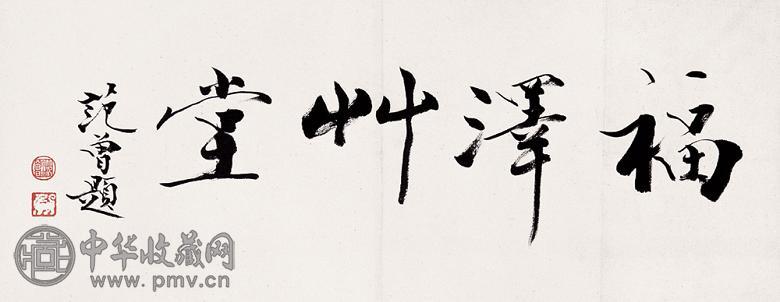 福澤艸堂
范曾題
中华收藏网
www.pmv.cn